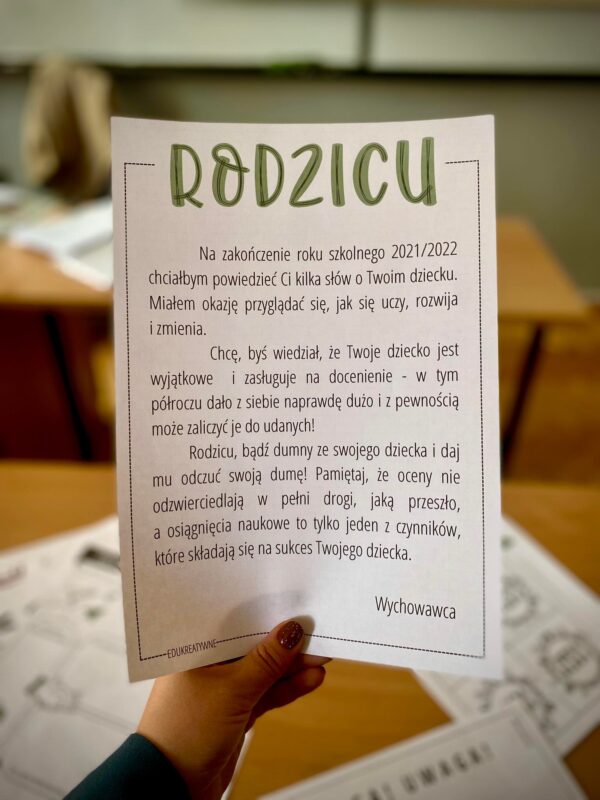 RODZICU
Na zakończenie roku szkolnego 2021/2022
chciałbym powiedzieć Ci kilka słów o Twoim dziecku.
Miałem okazję przyglądać się, jak się uczy, rozwija
i zmienia.
Chcę, byś wiedział, że Twoje dziecko jest
wyjątkowe i zasługuje na docenienie - w tym
półroczu dało z siebie naprawdę dużo i z pewnością
może zaliczyć je do udanych!
Rodzicu, bądź dumny ze swojego dziecka i daj
mu odczuć swoją dumę! Pamiętaj, że oceny nie
odzwierciedlają w pełni drogi, jaką przeszło,
a osiągnięcia naukowe to tylko jeden z czynników,
które składają się na sukces Twojego dziecka.
Wychowawca
EDUKREATYWNE
UWAGA!